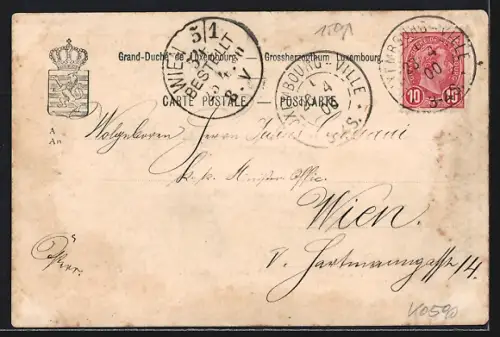 1591
Grand-Duché de Luxembourg. Grossherzogtum Luxemburg.
CARTE POSTALE — POSTKARTE
WIEN 5/1
BESTELLT
8. V
LUXEMBOURG-VILLE
4
00
LUXEMBOURG-VILLE
4
00
10 10
A
An
Wohlgeboren Herrn
k. k. Minister Office.
Wien.
V. Hartmanngasse 14.
K0590